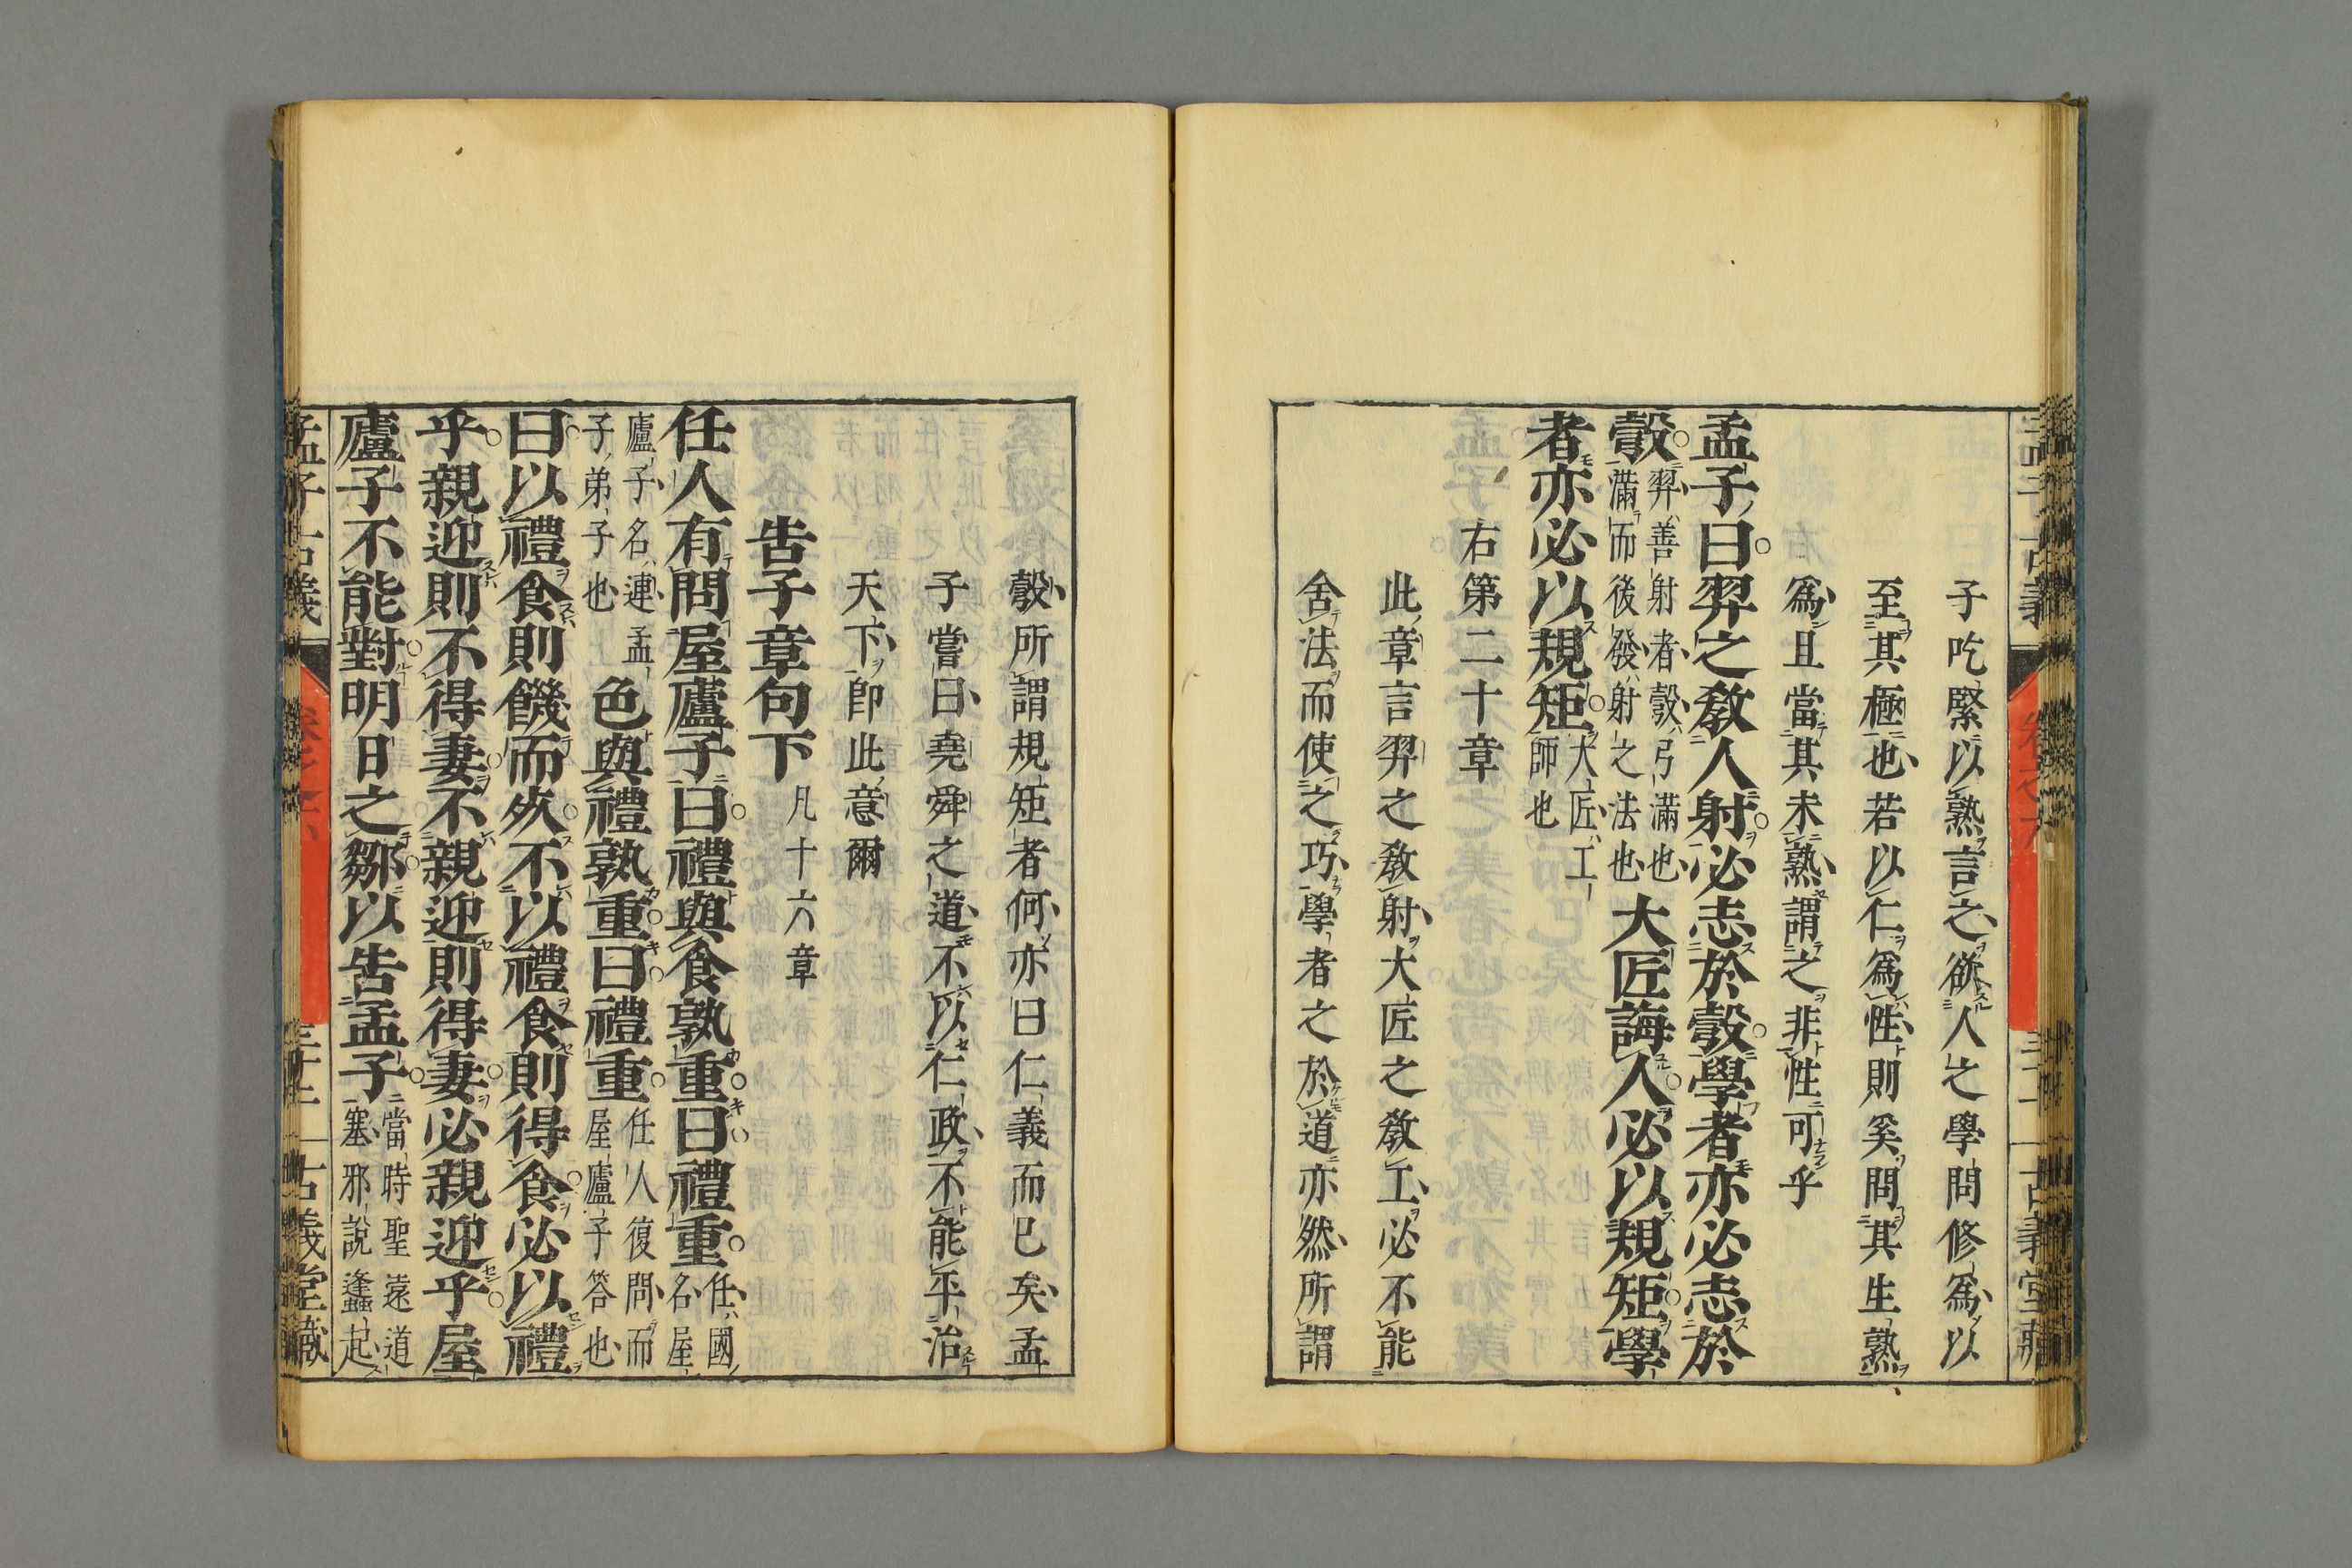 子吃緊以熟言之欲人之學問修爲以
至其極也若以仁爲性則奚問其生熟
爲且當其未熟謂之非性可乎
孟子曰羿之教人射必志於彀學者亦必志於
彀羿善射者彀弓滿也滿而後發射之法也大匠誨人必以規矩學
者亦必以規矩大匠工師也
右第二十章
此章言羿之教射大匠之教工必不能
舍法而使之巧學者之於道亦然所謂
彀所謂規矩者何亦曰仁義而已矣孟
子嘗曰堯舜之道不以仁政不能平治
天下卽此意爾
告子章句下凡十六章
任人有問屋廬子曰禮與食孰重曰禮重任國名屋
廬子名連孟子弟子也色與禮孰重曰禮重任人復問而屋廬子答也
曰以禮食則饑而死不以禮食則得食必以禮
乎親迎則不得妻不親迎則得妻必親迎乎屋
廬子不能對明日之鄒以告孟子當時聖遠道塞邪說蠭起
孟子古義 卷之六 古義堂藏